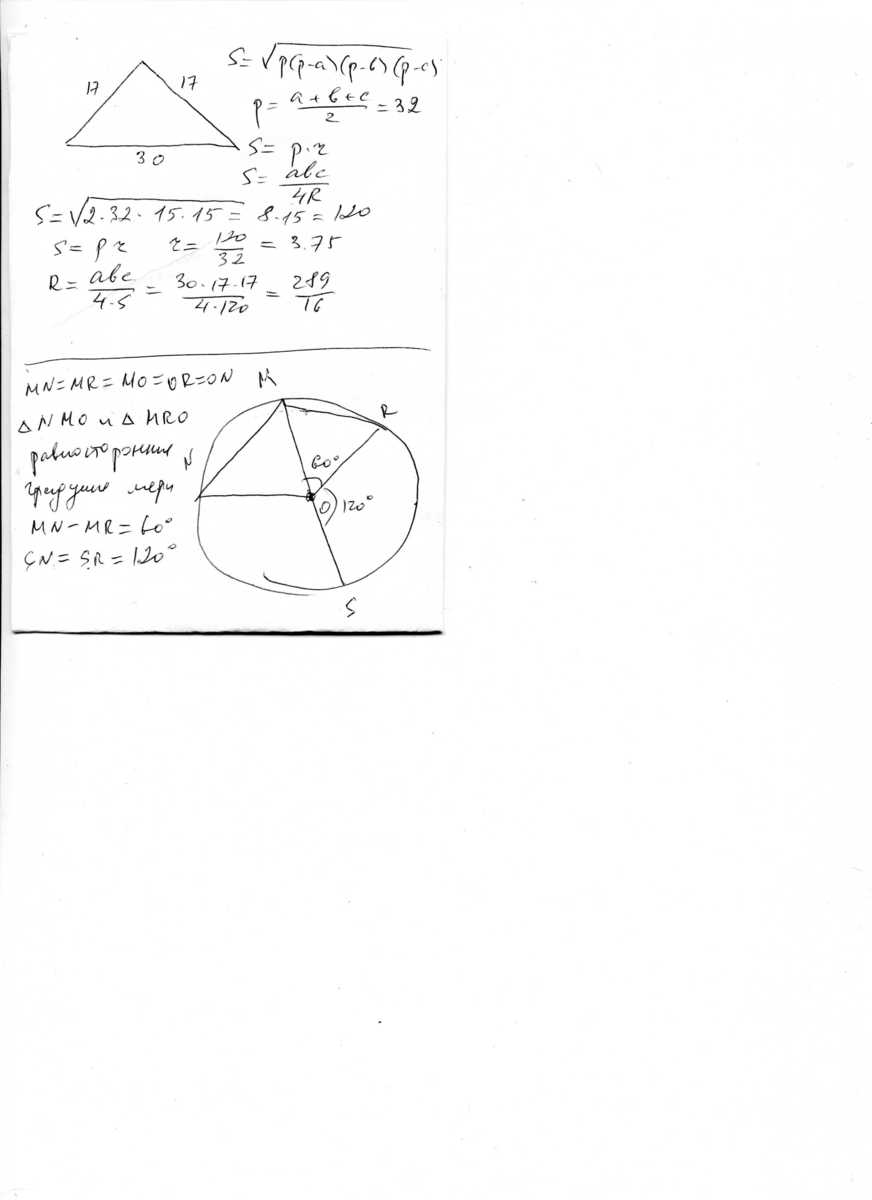 17
17
30
S = √p(p-a)(p-b)(p-c)
p = a+b+c/2 = 32
S = p·r
S = abc/4R
S = √2·32·15·15 = 8·15 = 120
S = p r r = 120/32 = 3.75
R = abc/4·S = 30·17·17/4·120 = 289/16
MN=MR=MO=OR=ON M
△NMO и △MRO
R
равносторонние N
60°
меры
O 120°
MN-MR=60°
SN=SR=120°
S